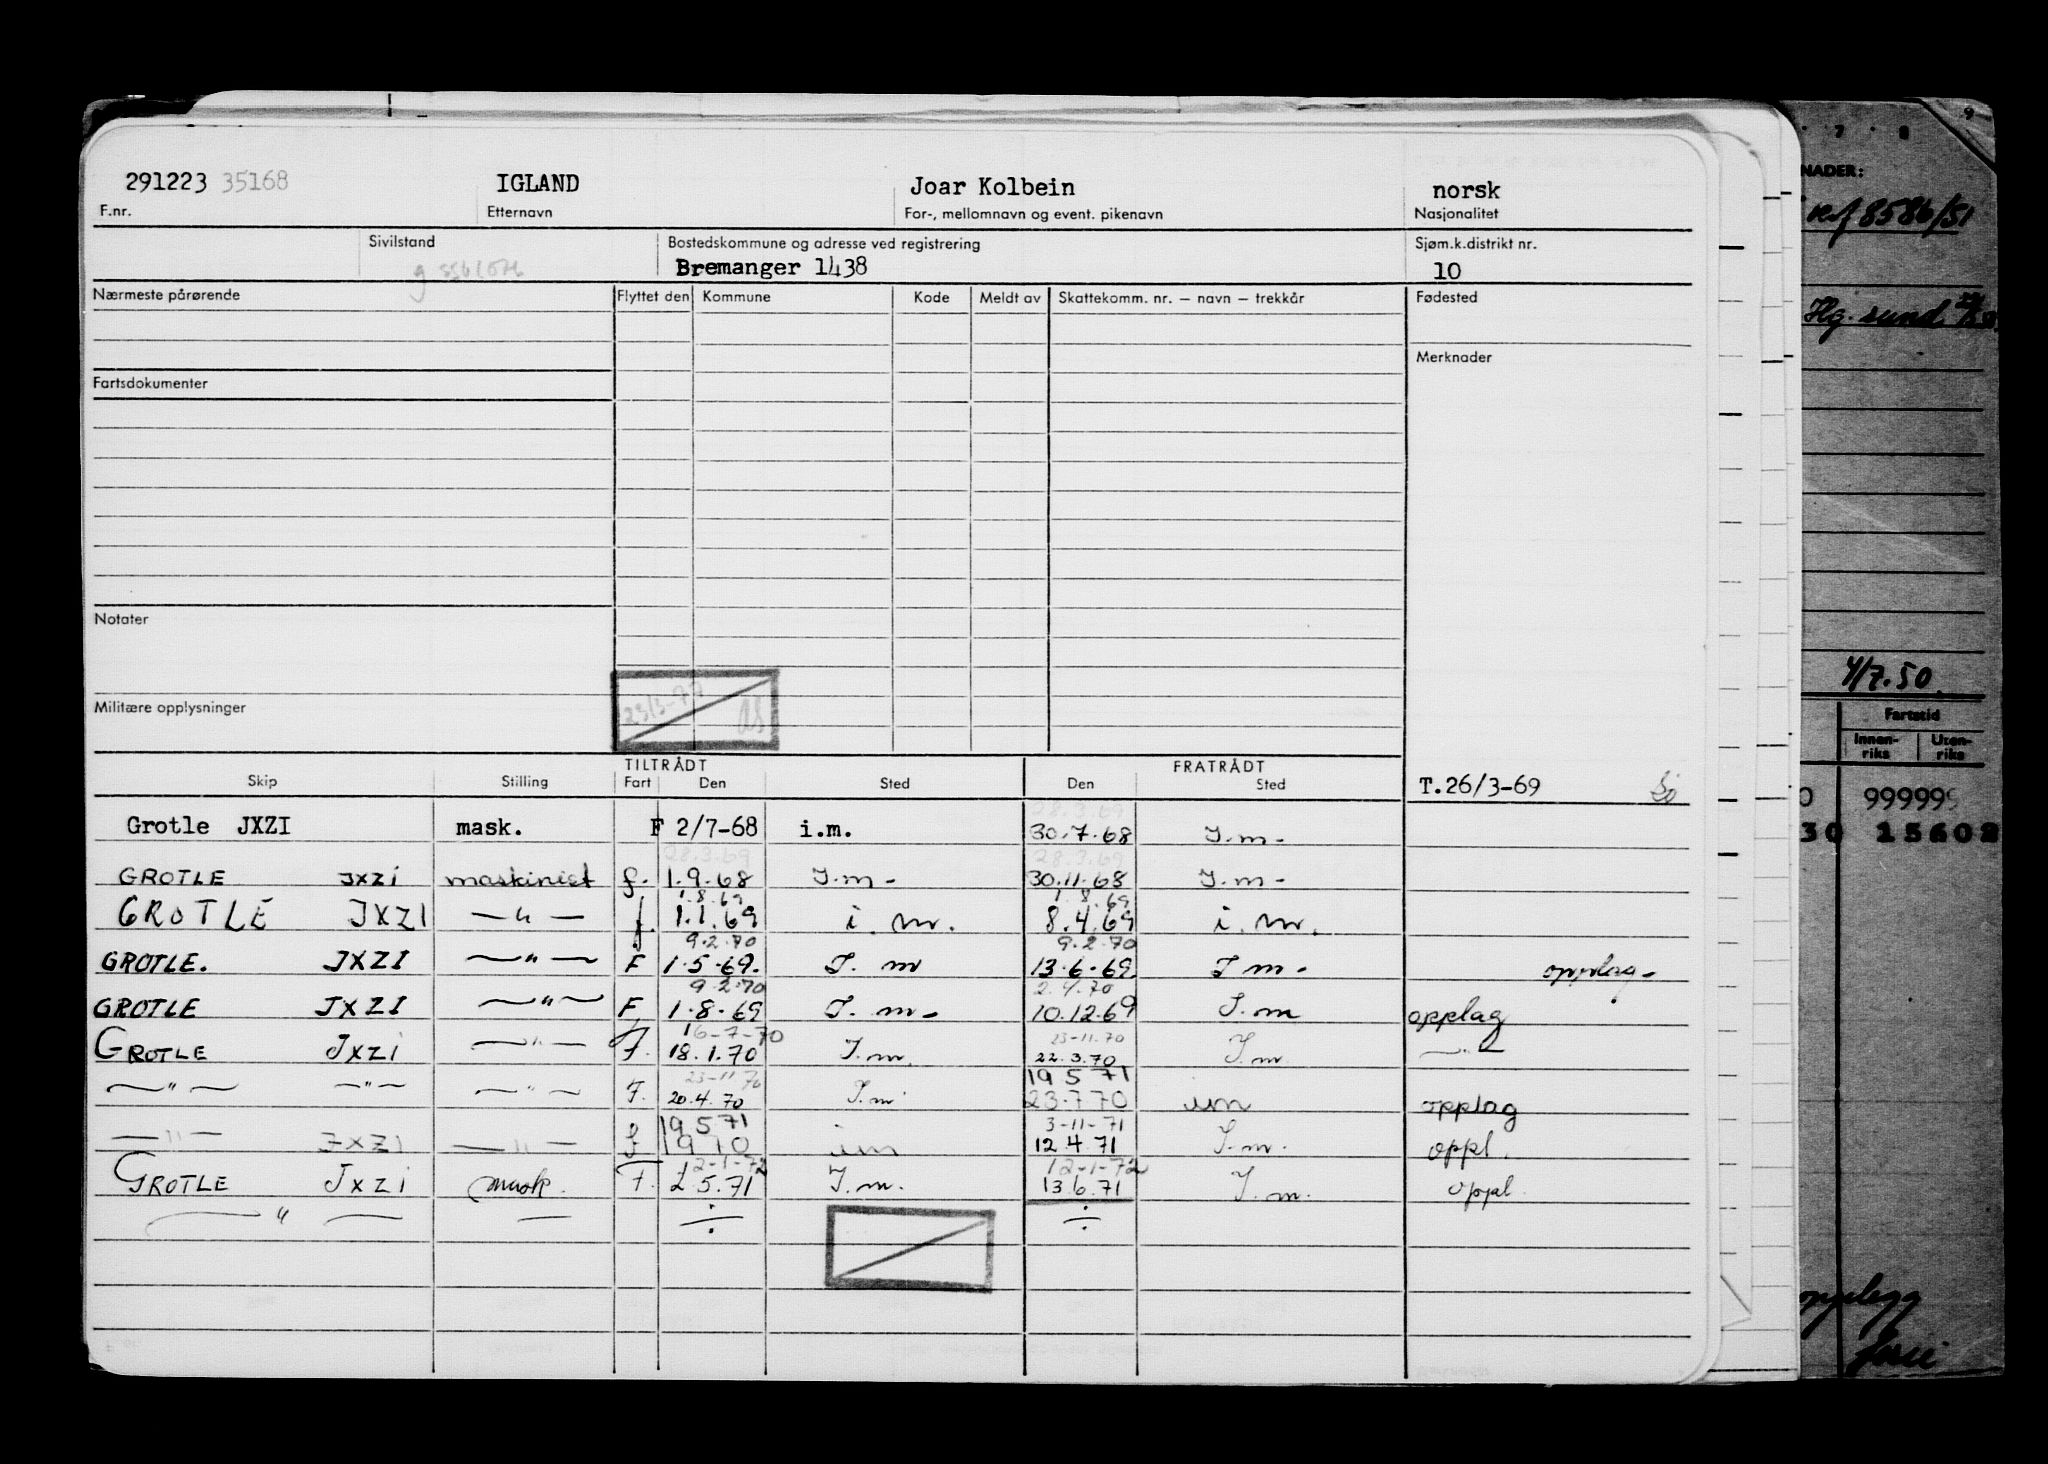 291223 35168 IGLAND Joar Kolbein norsk
F.nr. Etternavn For-, mellomnavn og event. pikenavn Nasjonalitet
Sivilstand Bostedskommune og adresse ved registrering Sjøm.k.distrikt nr.
Bremanger 1438 10
Nærmeste pårørende Flyttet den Kommune Kode Meldt av Skattekomm. nr. – navn – trekkår Fødested
Merknader
Fartsdokumenter
Notater
Militære opplysninger
TILTRÅDT FRATRÅDT
Skip Stilling Fart Den Sted Den Sted T.26/3-69
28.3.69
Grotle JXZI mask. F 2/7-68 i.m. 30.7.68 I.m-
28.3.69 28.3.69
GROTLE JXZI maskinist f. 1.9.68 I.m- 30.11.68 I.m-
1.8.69 1.8.69
GROTLE JXZI —"— f. 1.1.69 i.m. 8.4.69 i.m.
9.2.70 9.2.70
GROTLE. JXZI —"— F 1.5.69. I.m 13.6.69 I m- opplag-
9.2.70 2.4.70
GROTLE JXZI —"— F 1.8.69 I.m- 10.12.69 I.m opplag
16-7-70 23-11-70
GROTLE JXZI —"— F. 18.1.70 I.m. 22.3.70 I.m. —"—
23-11 70 19 5 71
—"— —"— —"— F. 20.4.70 I.m 23.7 70 im opplag
19 5 71 3-11-71
—"— JXZI —"— f 1 9 70 im 12.4.71 I.m. oppl.
12-1-72 12-1-72
GROTLE JXZI mask. F. 2.5.71 I.m. 13.6.71 I.m. oppl.
—"— — — ÷ ÷
7 8 9
NADER:
8586/51
Hg.sund
4/7.50
Fartstid
Innen-riks Uten-riks
0 999999
30 15602
opplegg